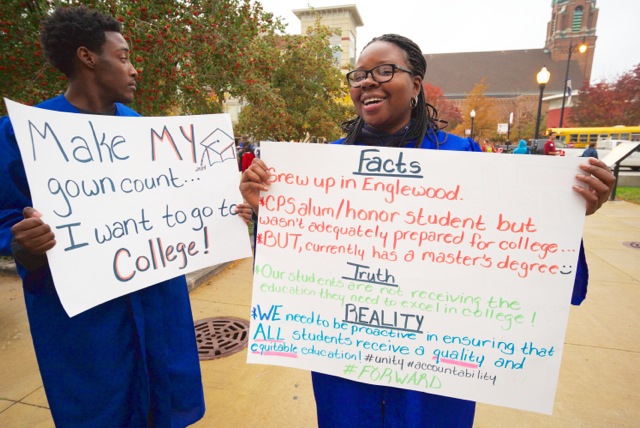 Make MY
gown count...
I want to go to
College!
Facts
Grew up in Englewood.
*CPS alum/honor student but
wasn't adequately prepared for college...
*BUT, currently has a master's degree
Truth
*Our students are not receiving the
education they need to excel in college!
REALITY
*WE need to be proactive in ensuring that
ALL students receive a quality and
equitable education! #unity #accountability
#FORWARD